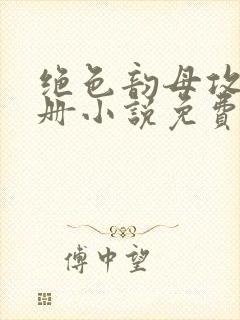 绝色韵母攻
册小说免费
傅中望